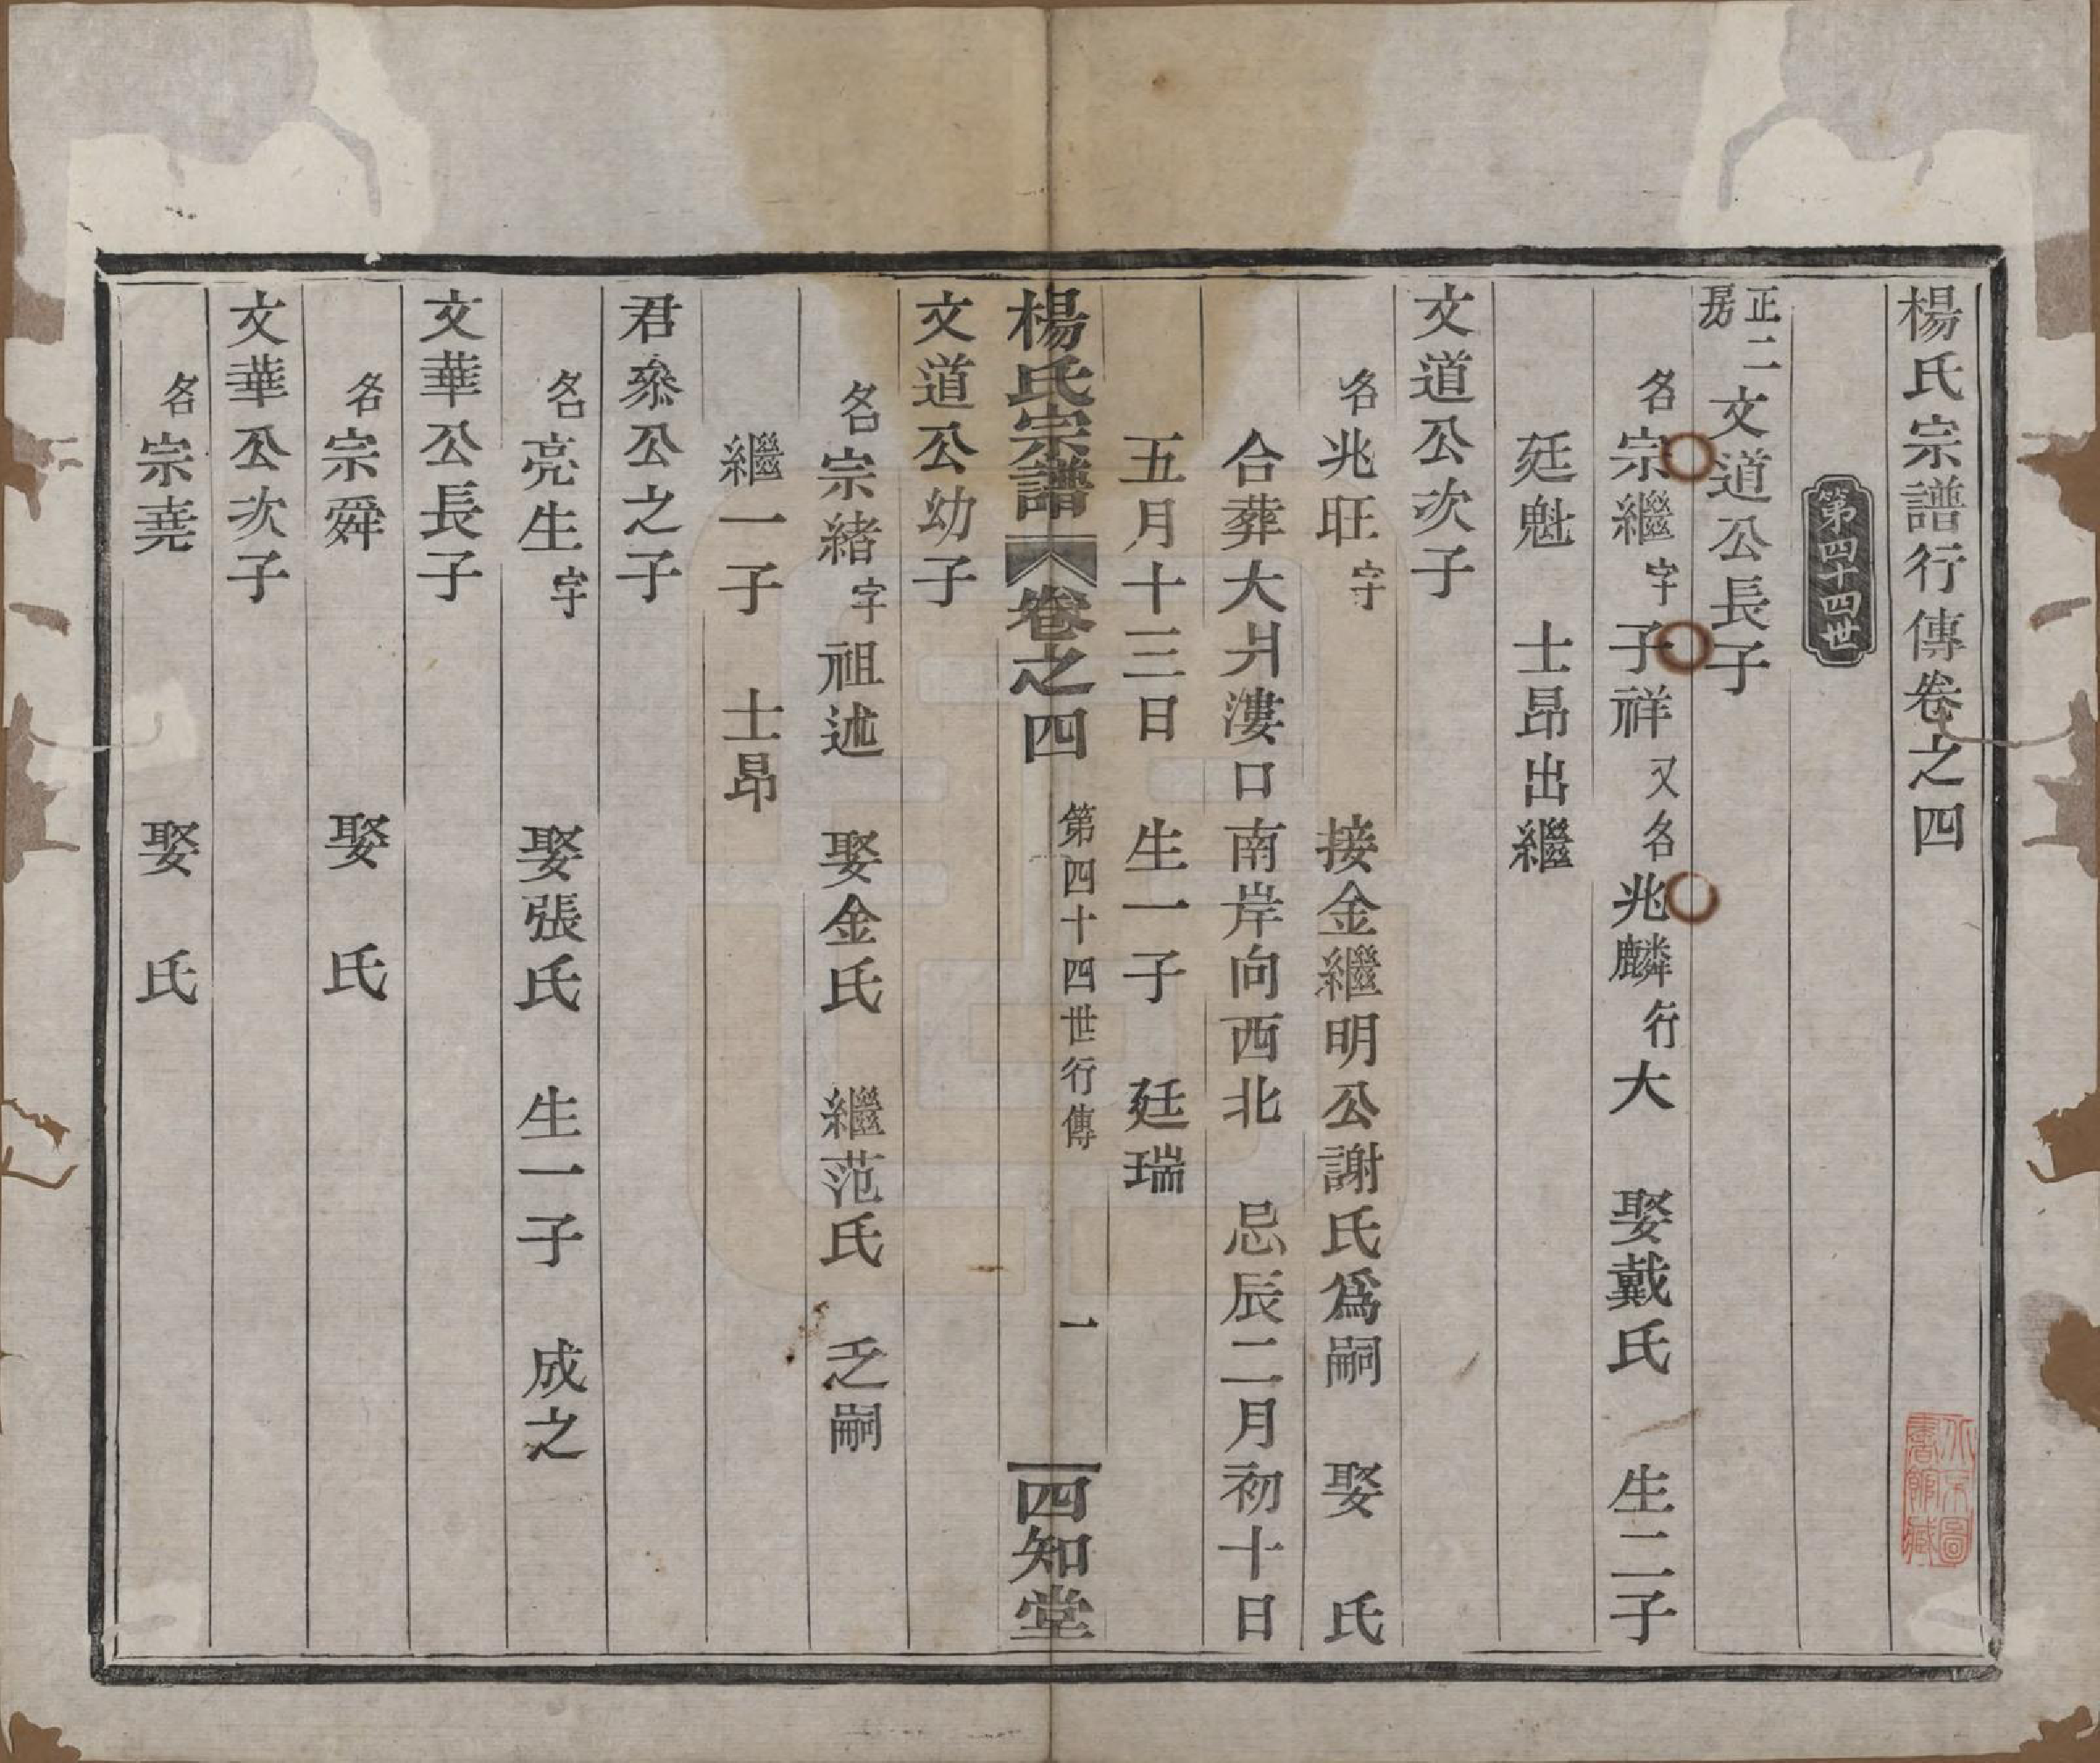 楊氏宗譜行傳卷之四
第四十四世
正二房 文道公長子
名宗繼字子祥又名兆麟行大 娶戴氏 生二子
廷魁 士昂出繼
文道公次子
名兆旺字 接金繼明公謝氏爲嗣 娶 氏
合葬大爿漊口南岸向西北 忌辰二月初十日
五月十三日 生一子 廷瑞
楊氏宗譜 卷之四 第四十四世行傳 一 四知堂
文道公幼子
名宗緒字祖述 娶金氏 繼范氏 乏嗣
繼一子 士昂
君叅公之子
名亮生字 娶張氏 生一子 成之
文華公長子
名宗舜 娶 氏
文華公次子
名宗堯 娶 氏